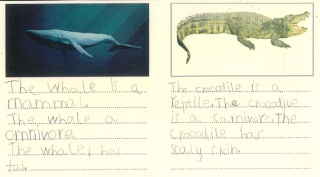 The whale is a
mammal.
The whale a
omnivore.
The whale, has
tai.
The crocodile is a
reptile. The crocodive
is a carnivore. The
crocodile has
scaly skin.